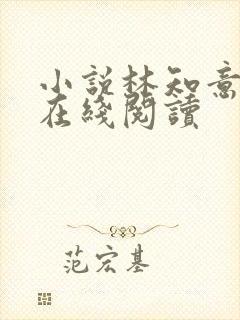 小說林知意
在綫閱讀
范宏基